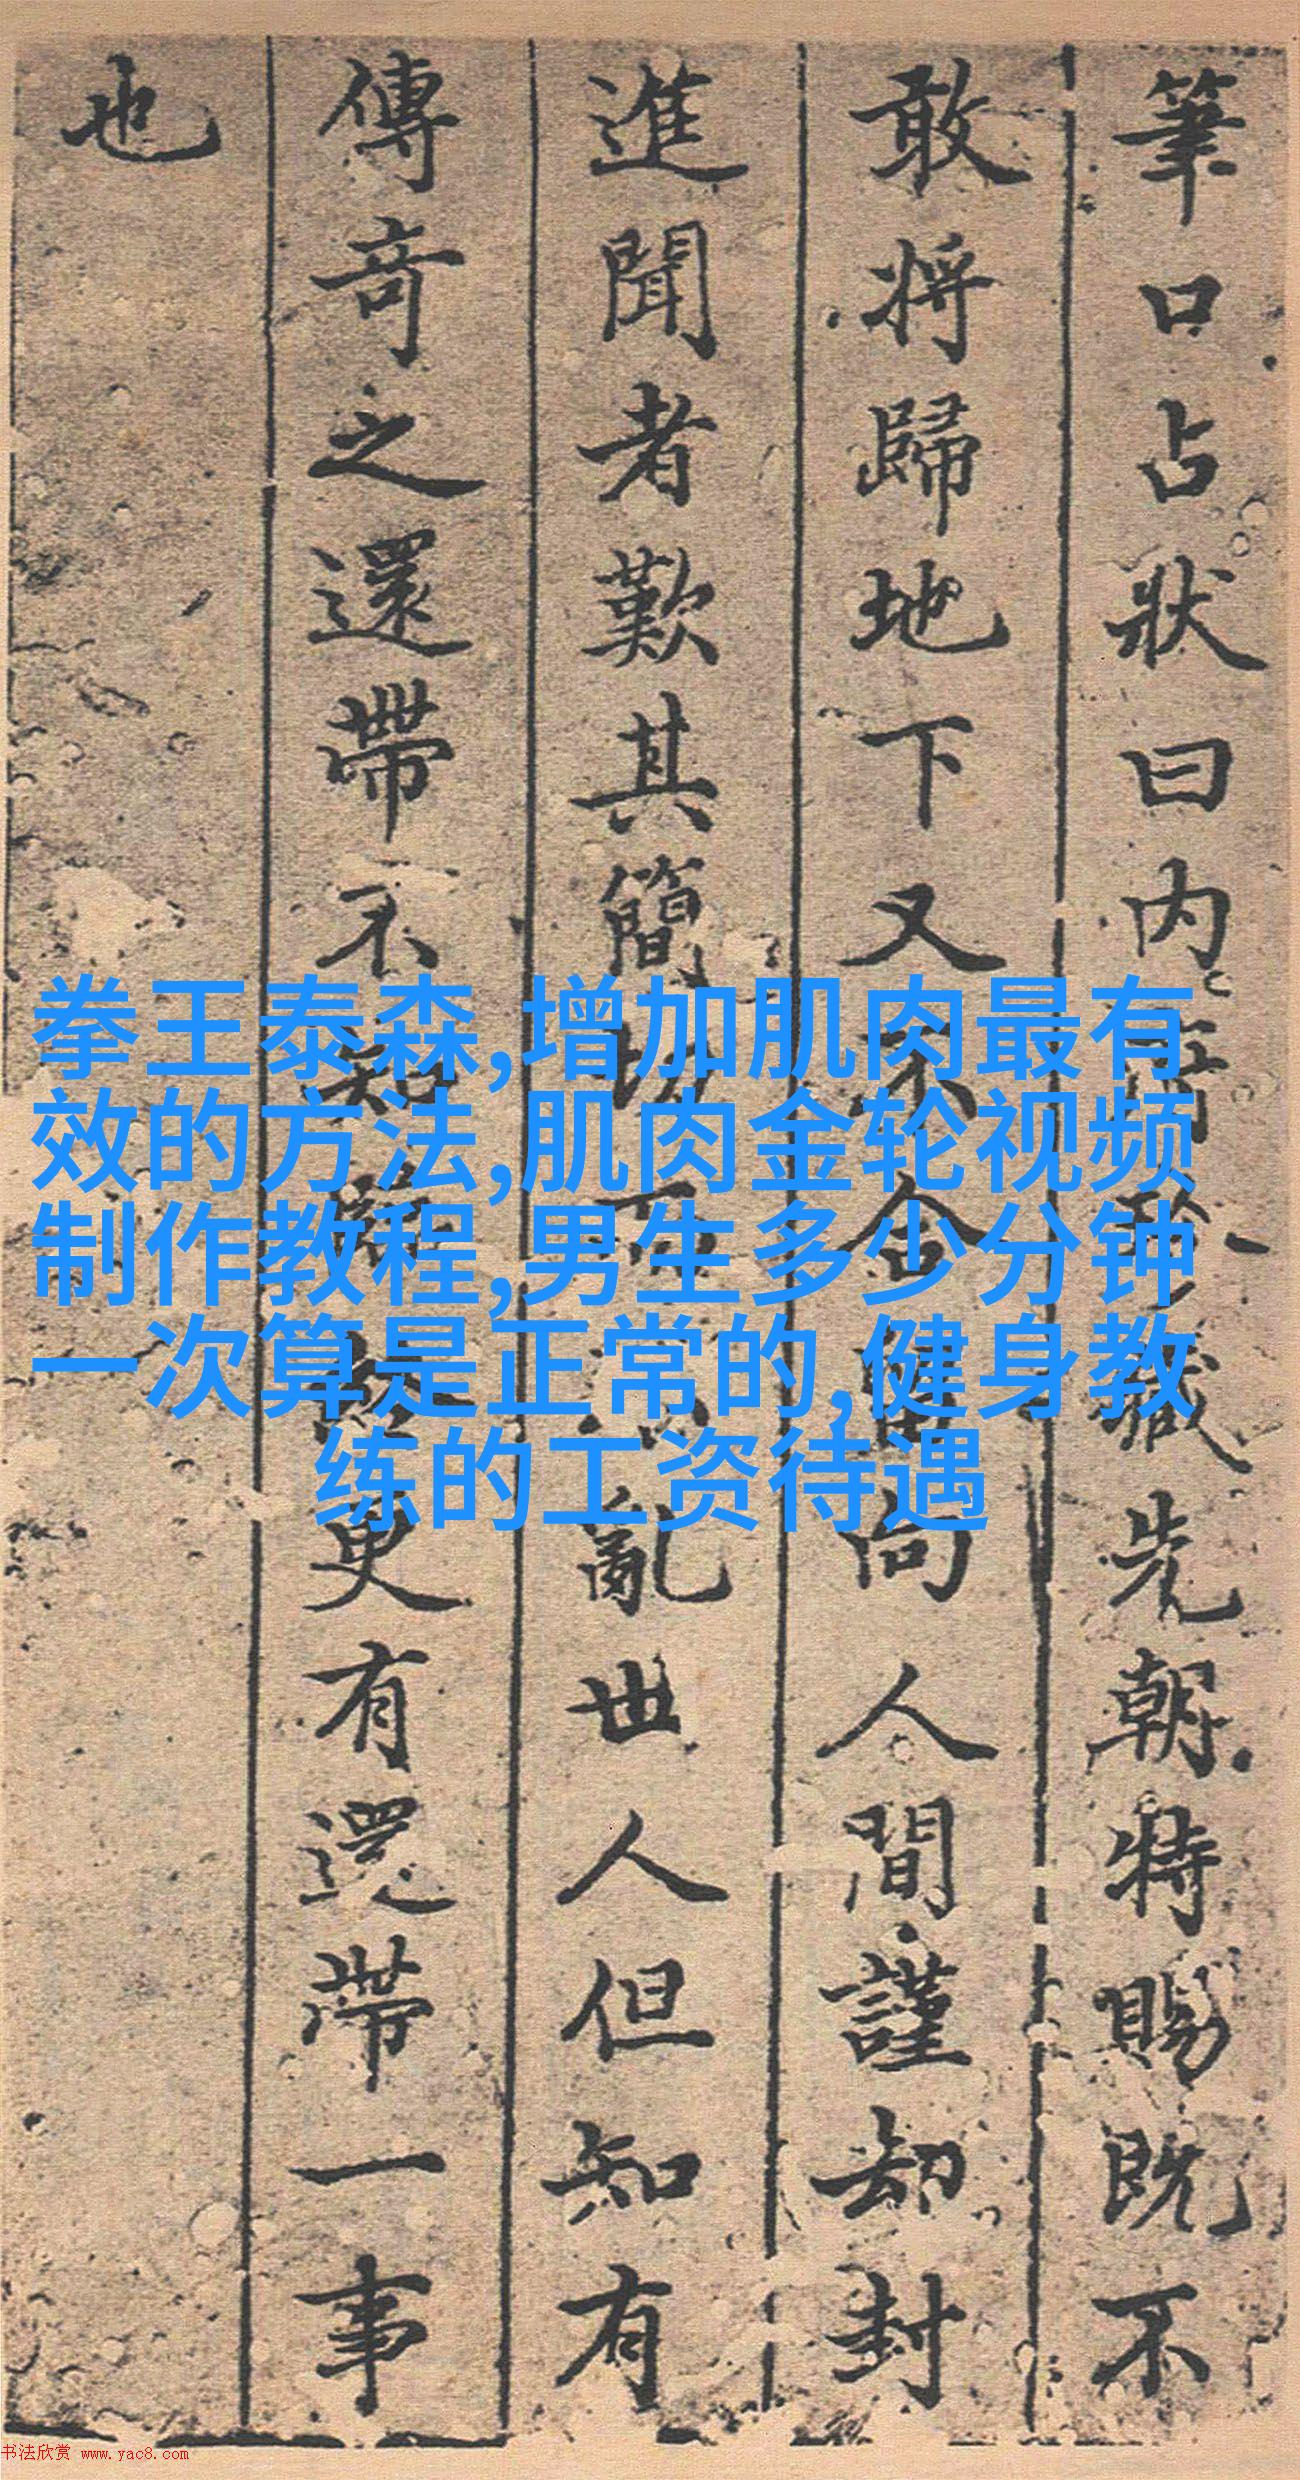 筆口占狀曰内
先朝特賜既不
敢將歸地下又不合留向人間謹却封
進聞者歎其簡
亂世人但知有
傳奇之還帶不知
更有還帶一事
也
拳王泰森,增加肌肉最有
效的方法,肌肉金轮视频
制作教程,男生多少分钟
一次算是正常的,健身教
练的工资待遇
书法欣赏 www.yac8.com